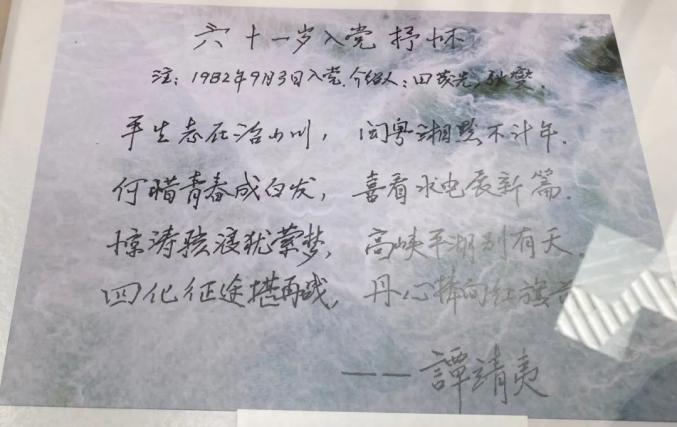 六十一岁入党抒怀
注：1982年9月3日入党.介绍人：田茂先，孙燮.
平生志在治山川，闽粤湘黔不计年.
何惜青春成白发，喜看水电展新篇.
惊涛骇浪犹萦梦，高峡平湖别有天.
四化征途堪再战，丹心捧向红旗前.
——譚靖夷